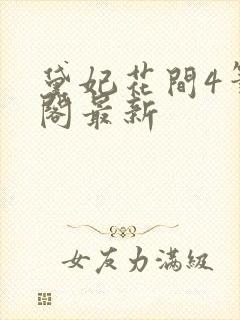 黛妃花間4筆
閣最新
女友力滿級